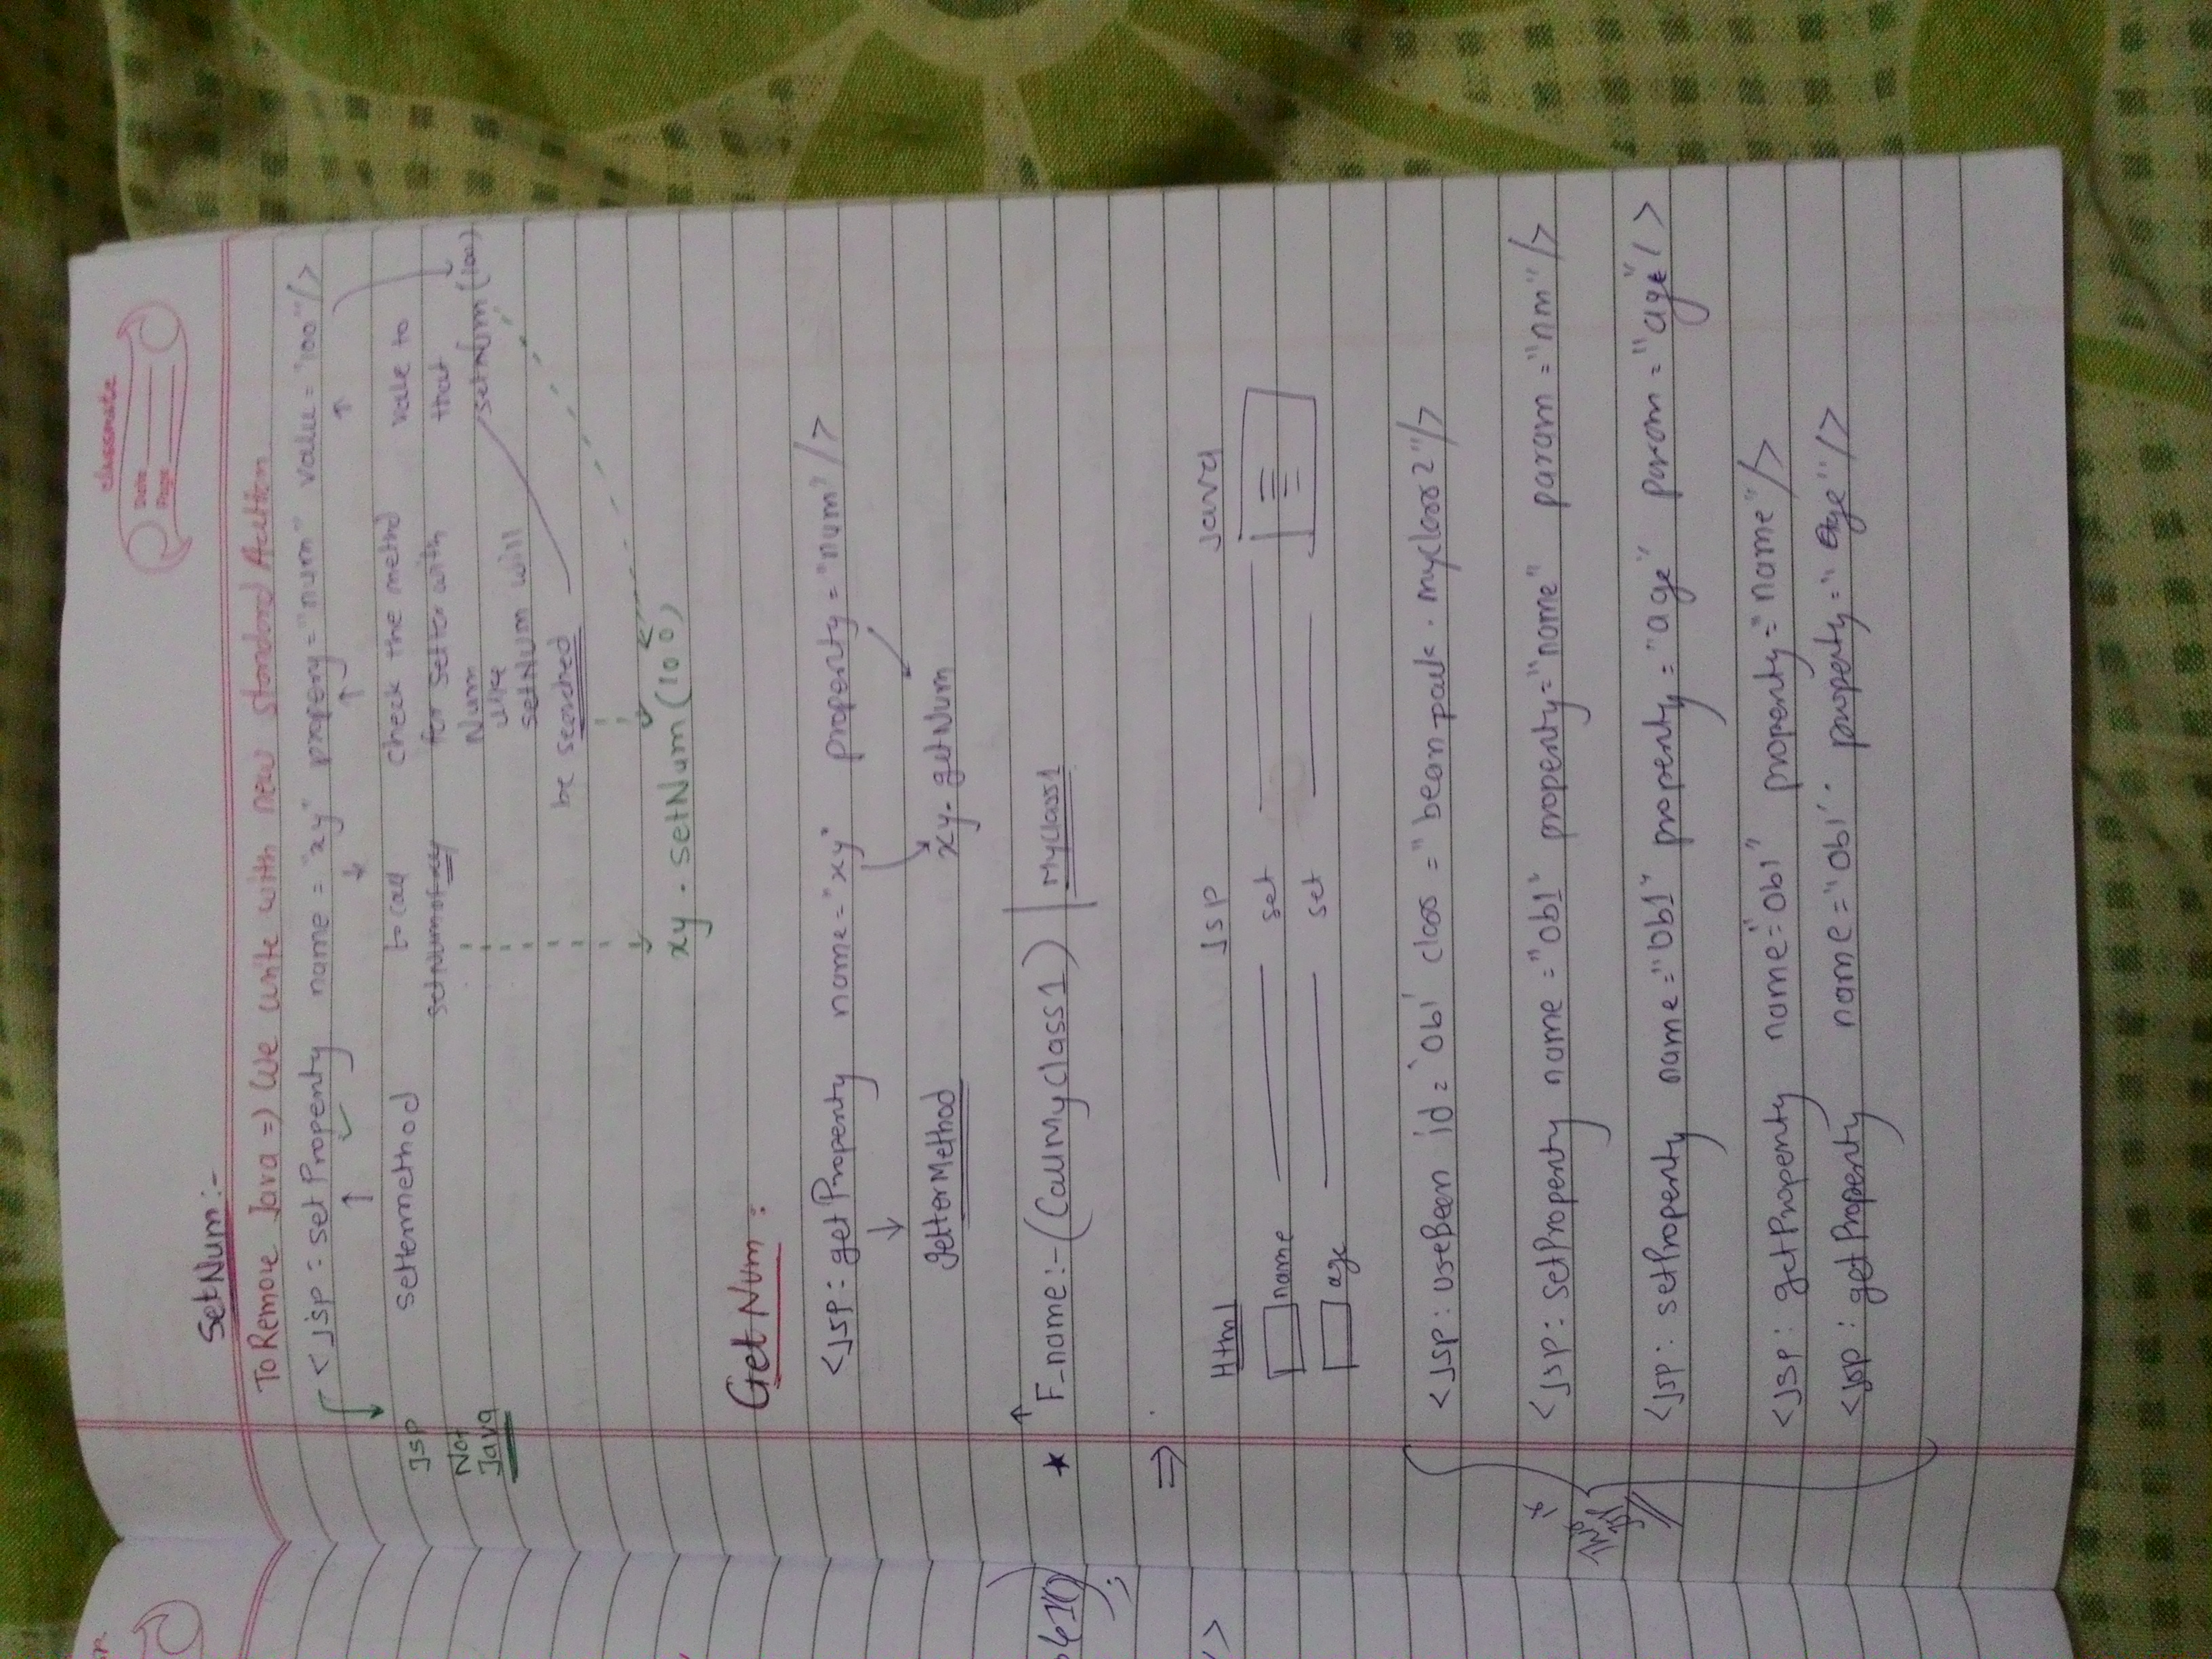 classmate
Date
Page
SetNum:-
To Remove Java => We write with new standard Action
<jsp: setProperty name = "xy" propery = "num" value = "100"/>
Jsp
Not
Java
settermethod
to call
setNum of xy
check the methd
for setter with
Num
like
setNUM will
be searched
vale to
that
setNum (100)
xy . setNum (100)
Get Num :
<jsp: getProperty name = "xy" property = "num" />
getterMethod
xy. getNum
★ F_name:- (CallMyclass1) | Myclass1
⇒
Html Jsp Java
name set
age set
<jsp: useBean id = 'ob1' class = "bean pack . myclass2"/>
<jsp: setProperty name = "ob1" property = "name" param = "nm"/>
This is
Jsp
<jsp: setProperty name = "ob1" property = "age" param = "age"/>
<jsp: getProperty name = "ob1" property = "name"/>
<jsp: getProperty name = "ob1" property = "age"/>